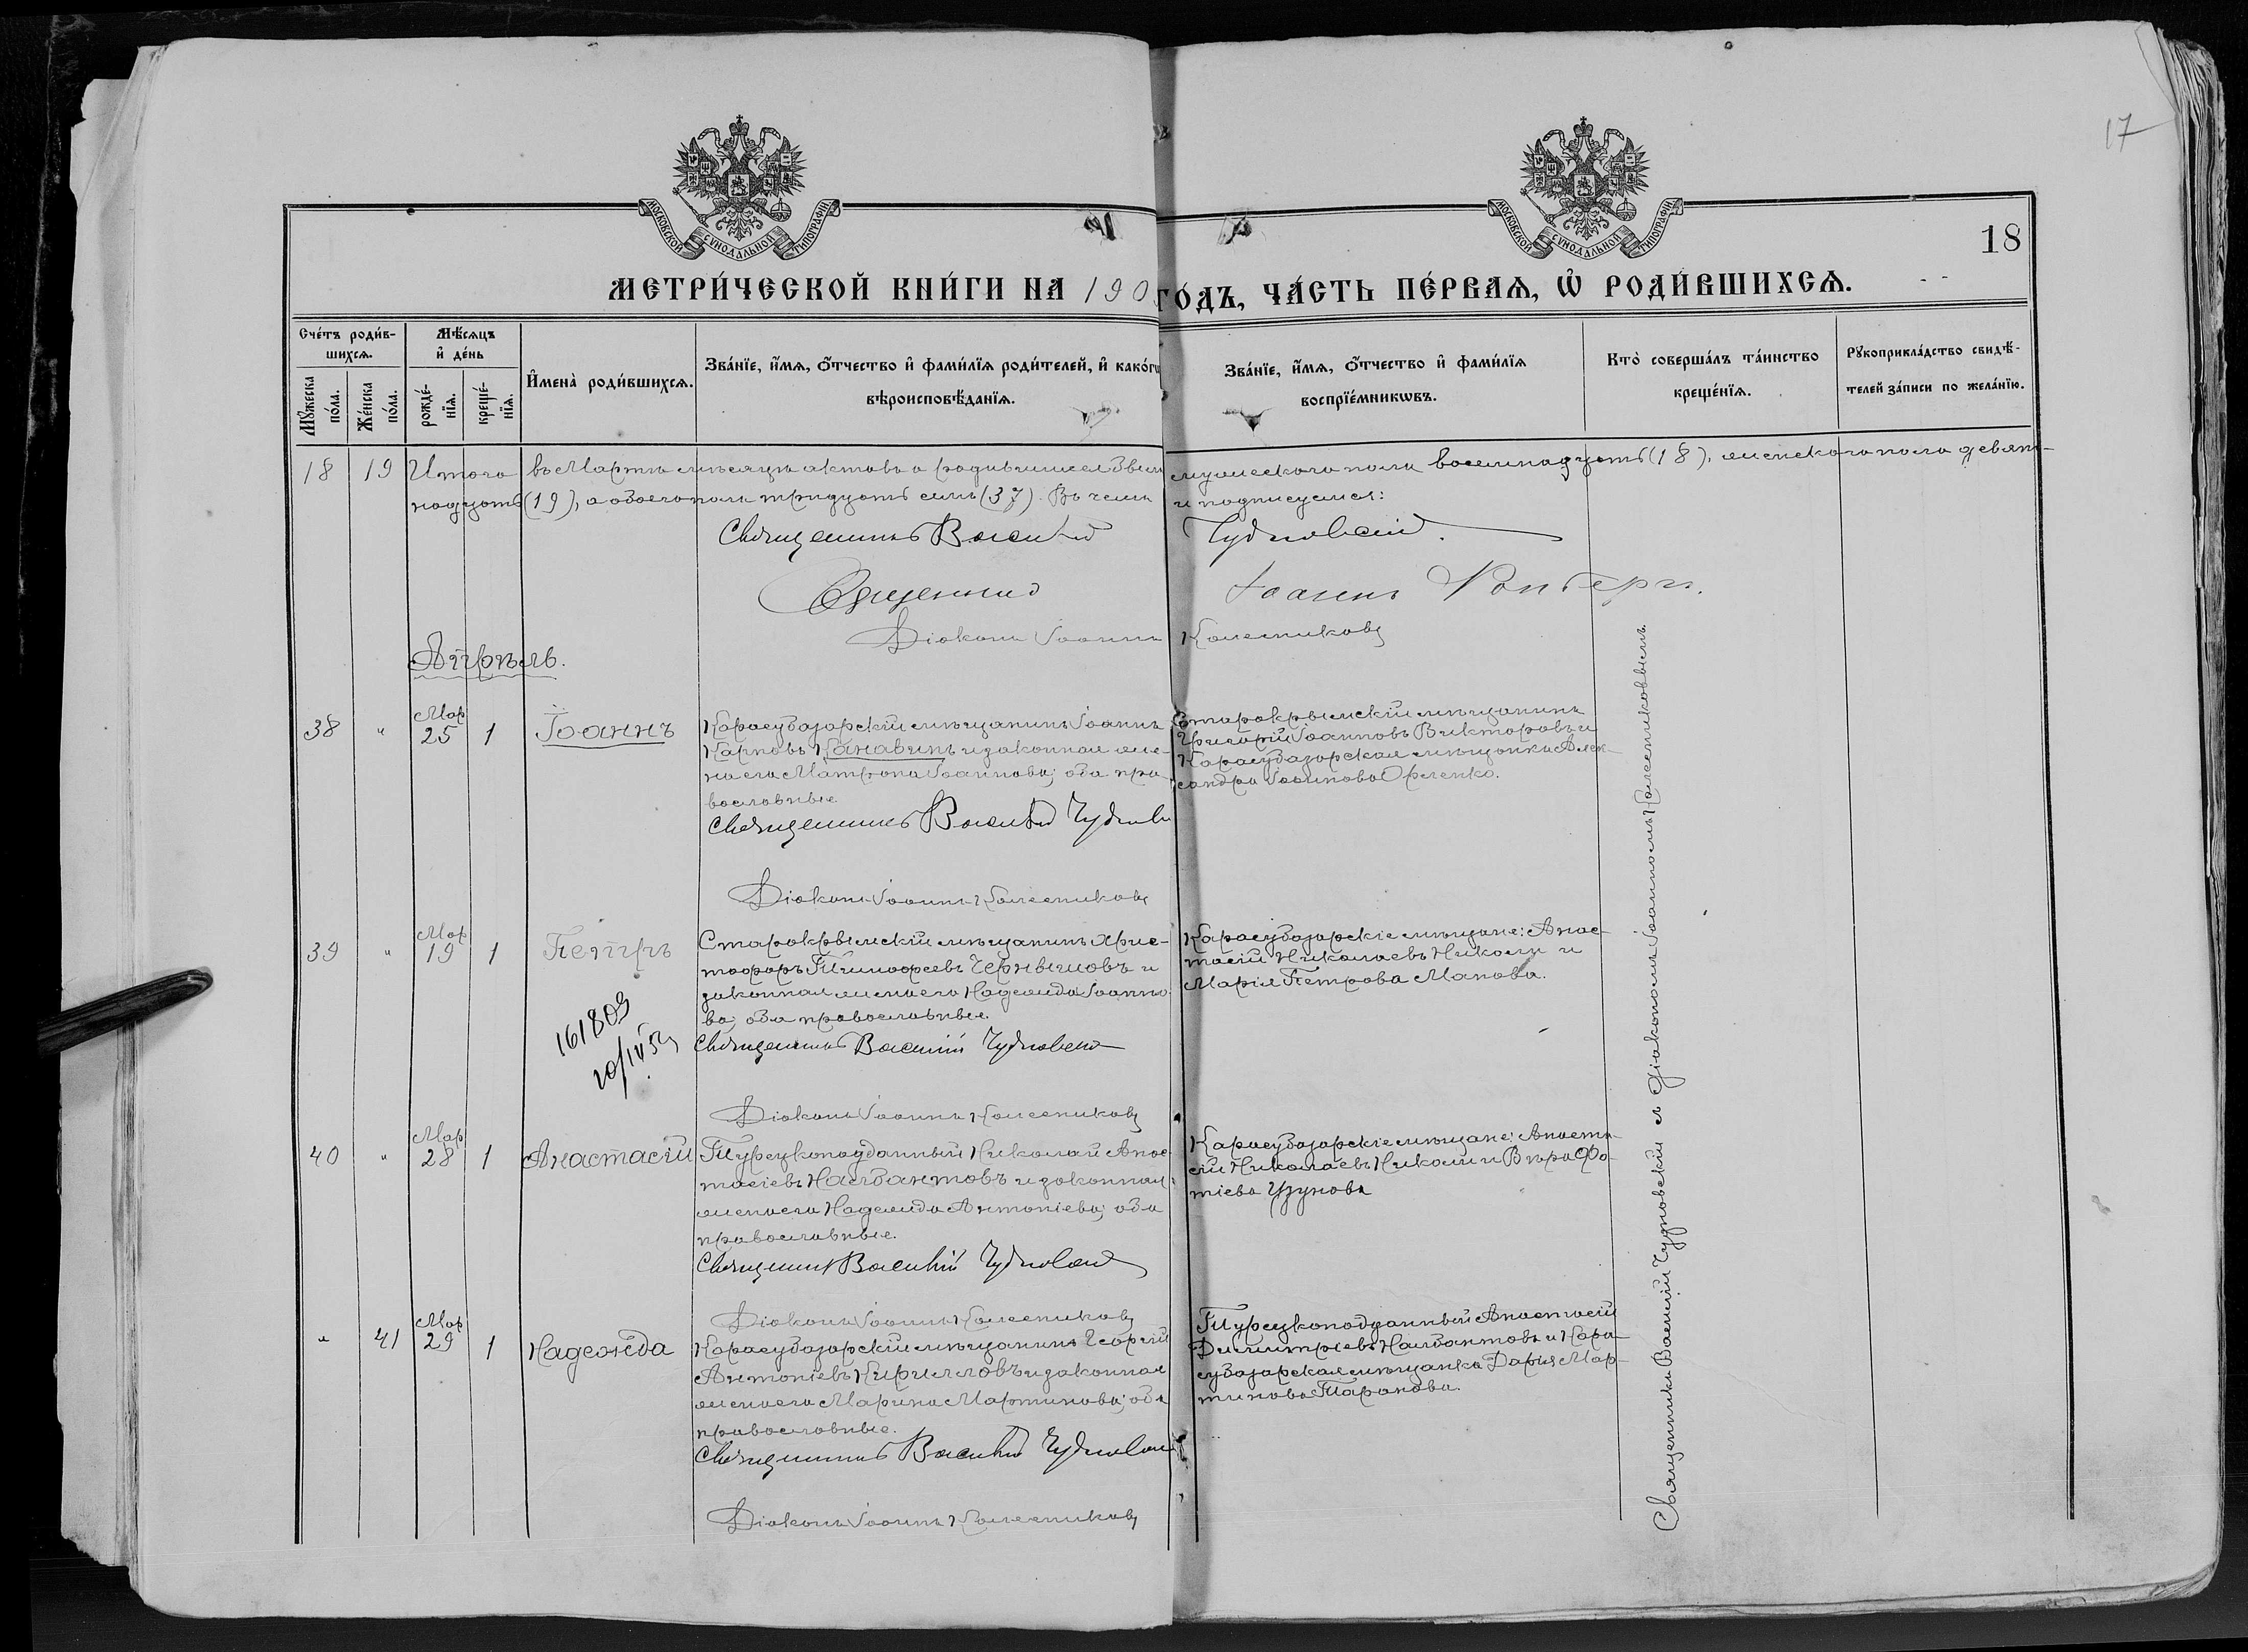 17
МОСКОВСКОЙ СѴНОДАЛЬНОЙ ТИПОГРАФІИ
МОСКОВСКОЙ СѴНОДАЛЬНОЙ ТИПОГРАФІИ
18
МЕТРИ́ЧЕСКОЙ КНИ́ГИ НА 190
ГО́ДЪ, ЧА́СТЬ ПЕ́РВАѦ, Ѡ҆ РОДИ́ВШИХСѦ.
Сче́тъ роди́в-
шихсѧ.
Мꙋ́жеска
по́ла.
Же́нска
по́ла.
Мѣ́сѧцъ
и҆ де́нь
рожде́-
нїѧ.
креще́-
нїѧ.
И҆мена̀ роди́вшихсѧ.
Зва́нїе, и҆́мѧ, ѻ҆́тчество и҆ фами́лїѧ роди́телей, и҆ како́гѡ
вѣроисповѣ́данїѧ.
Зва́нїе, и҆́мѧ, ѻ҆́тчество и҆ фами́лїѧ
воспрїе́мникѡвъ.
Кто̀ соверша́лъ та́инство
креще́нїѧ.
Рꙋкоприкла́дство свидѣ́-
телей за́писи по жела́нїю.
18 19 Итого въ Мартѣ мѣсяцѣ актовъ о родившихся мужескаго пола восемнадцать (18), женскаго пола девят-
надцать (19), а обоего пола тридцать семь (37). Въ чемъ и подписуемся:
Священникъ Василій Чудновскій.
Священникъ Іоаннъ
Діаконъ Іоаннъ Колесниковъ
Апрѣль.
38 " Мар 25 1 Іоаннъ
Карасубазарскій мѣщанинъ Іоаннъ
Карповъ Канавинъ и законная же-
на его Матрона Іоаннова; оба пра-
вославные
Священникъ Василій Чудновскій
Діаконъ Іоаннъ Колесниковъ
Старокрымскій мѣщанинъ
Григорій Іоанновъ Викторовъ и
Карасубазарская мѣщанка Алек-
сандра Іоаннова Орленко.
39 " Мар 19 1 Петръ
161809
20/IV 52
Старокрымскій мѣщанинъ Хрис-
тофоръ Тимофеевъ Чернышовъ и
законная жена его Надежда Іоанно-
ва; оба православные.
Священникъ Василій Чудновскій
Діаконъ Іоаннъ Колесниковъ
Карасубазарскіе мѣщане: Анас-
тасій Николаевъ Николи и
Марія Петрова Манова.
40 " Мар 28 1 Анастасій
Турецкоподданный Николай Анас-
тасіевъ Налбантовъ и законная
жена его Надежда Антоніева; оба
православные.
Священникъ Василій Чудновскій
Діаконъ Іоаннъ Колесниковъ
Карасубазарскіе мѣщане: Анаста-
сій Николаевъ Николи и Вѣра Фо-
тіева Узунова
" 41 Мар 29 1 Надежда
Карасубазарскій мѣщанинъ Георгій
Антоніевъ Кирилловъ и законная
жена его Марина Мартинова; оба
православные.
Священникъ Василій Чудновскій
Діаконъ Іоаннъ Колесниковъ
Турецкоподданный Анастасій
Димитріевъ Налбантовъ и Кара-
субазарская мѣщанка Дарія Мар-
тинова Таранова.
Священникъ Василій Чудновскій съ діакономъ Іоанномъ Колесниковымъ.